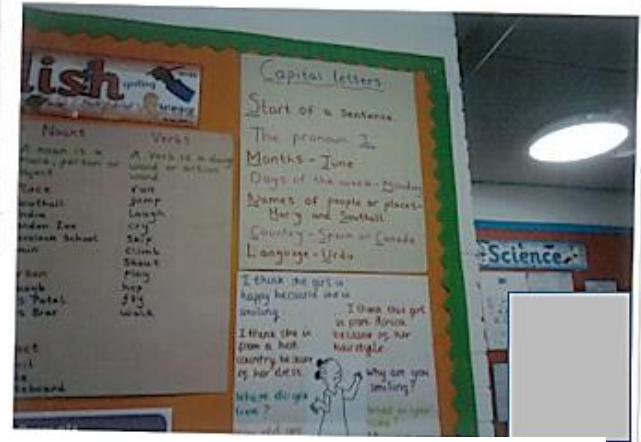 lish
Nouns
A noun is a
place, person or
object
Place
Southall
India
London Zoo
School
Verbs
A verb is a doing
word or action
word
run
jump
laugh
cry
skip
climb
shout
play
hop
fly
walk
Capital letters
Start of a sentence
The pronoun I
Months - June
Days of the week - Monday
Names of people or places -
Mary and Southall
Country - Spain or Canada
Language - Urdu
I think the girl is
happy because she is
smiling
I think this girl
is from Africa
because of her
hairstyle.
I think she is
from a hot
country because
of her dress.
Why are you
smiling?
Where do you
live?
What is your
name?
Science